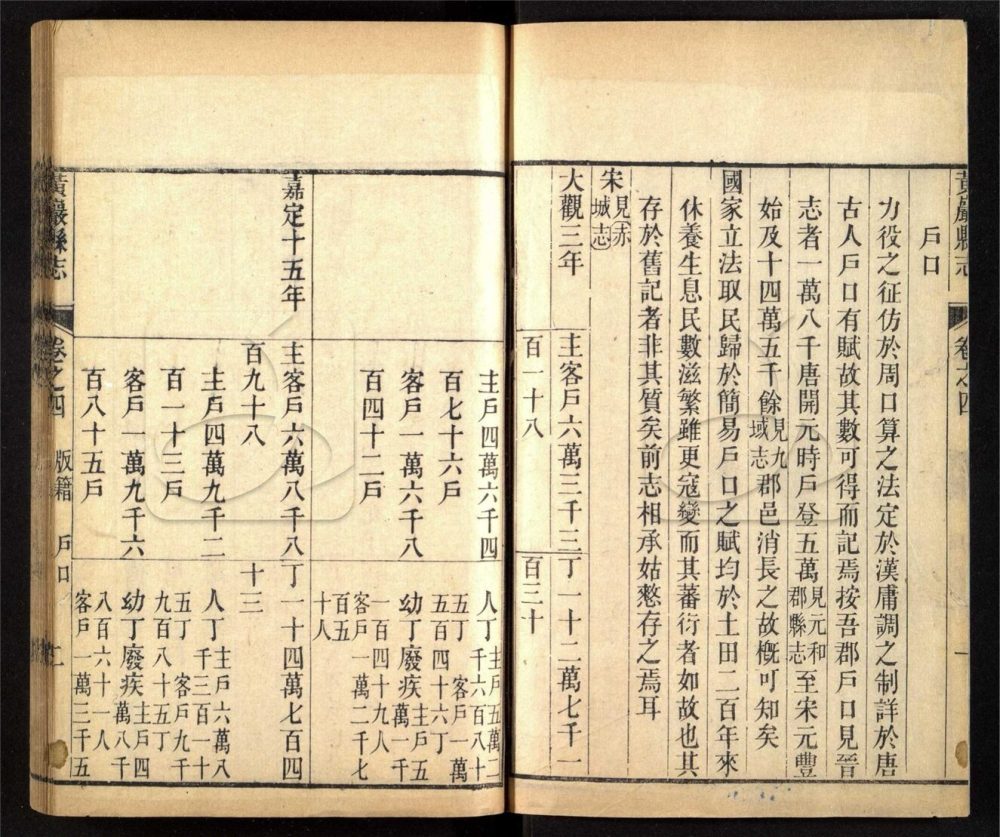 黃巖縣志 卷之四 一
戶口
力役之征仿於周口算之法定於漢庸調之制詳於唐
古人戶口有賦故其數可得而記焉按吾郡戶口見晉
志者一萬八千唐開元時戶登五萬見元和郡縣志至宋元豐
始及十四萬五千餘見九域志郡邑消長之故慨可知矣
國家立法取民歸於簡易戶口之賦均於土田二百年來
休養生息民數滋繁雖更寇變而其蕃衍者如故也其
存於舊記者非其質矣前志相承姑憖存之焉耳
宋見赤城志
大觀三年
主客戶六萬三千三
百一十八
丁一十二萬七千一
百三十
主戶四萬六千四
百七十六戶
人丁主戶五萬二千六百八十
五丁客戶一萬五百四十六丁
客戶一萬六千八
百四十二戶
幼丁廢疾主戶五萬一千
一百四十九人
客戶一萬二千七百五
十人
嘉定十五年
主客戶六萬八千八
百九十八
丁一十四萬七百四
十三
主戶四萬九千二
百一十三戶
人丁主戶六萬八千三百一十
五丁客戶九千九百八十五丁
客戶一萬九千六
百八十五戶
幼丁廢疾主戶四萬八千
八百六十一人
客戶一萬三千五
黃巖縣志 卷之四 版籍 戶口 二